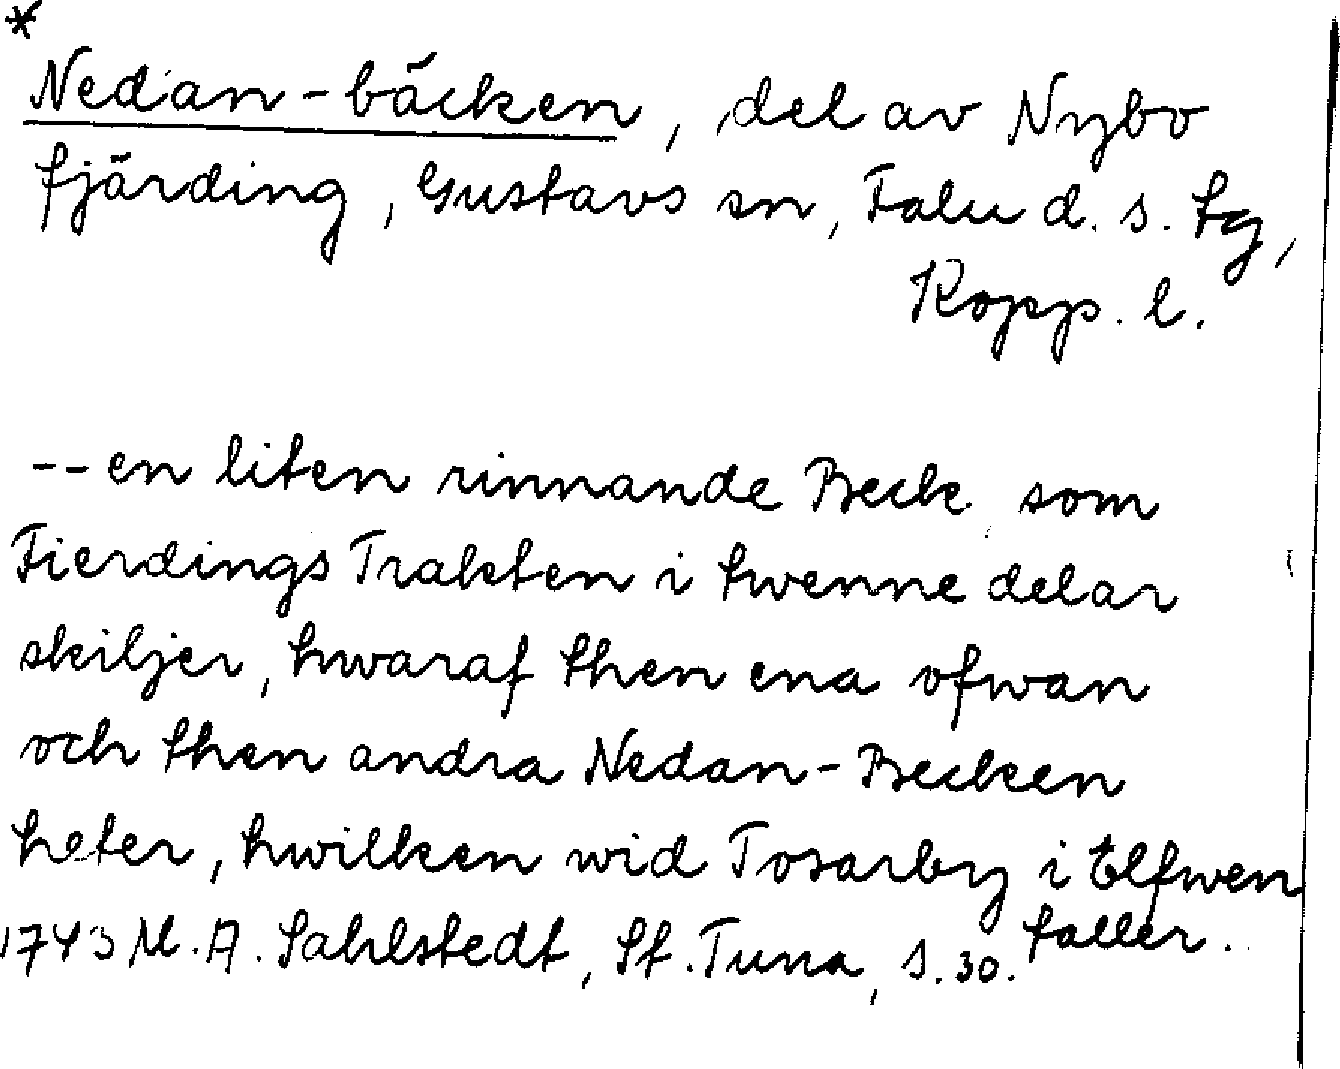 *
Nedan-bäcken, del av Nybo
fjärding, Gustavs sn, Falu d. s. tg,
Kopp. l.
--en liten rinnande Beck som
Fierdings Trakten i twenne delar
skiljer, hwaraf then ena ofwan
och then andra Nedan-Becken
heter, hwilken wid Tosarby i Elfwen
faller.
1743 M. A. Sahlstedt, St. Tuna, s. 30.